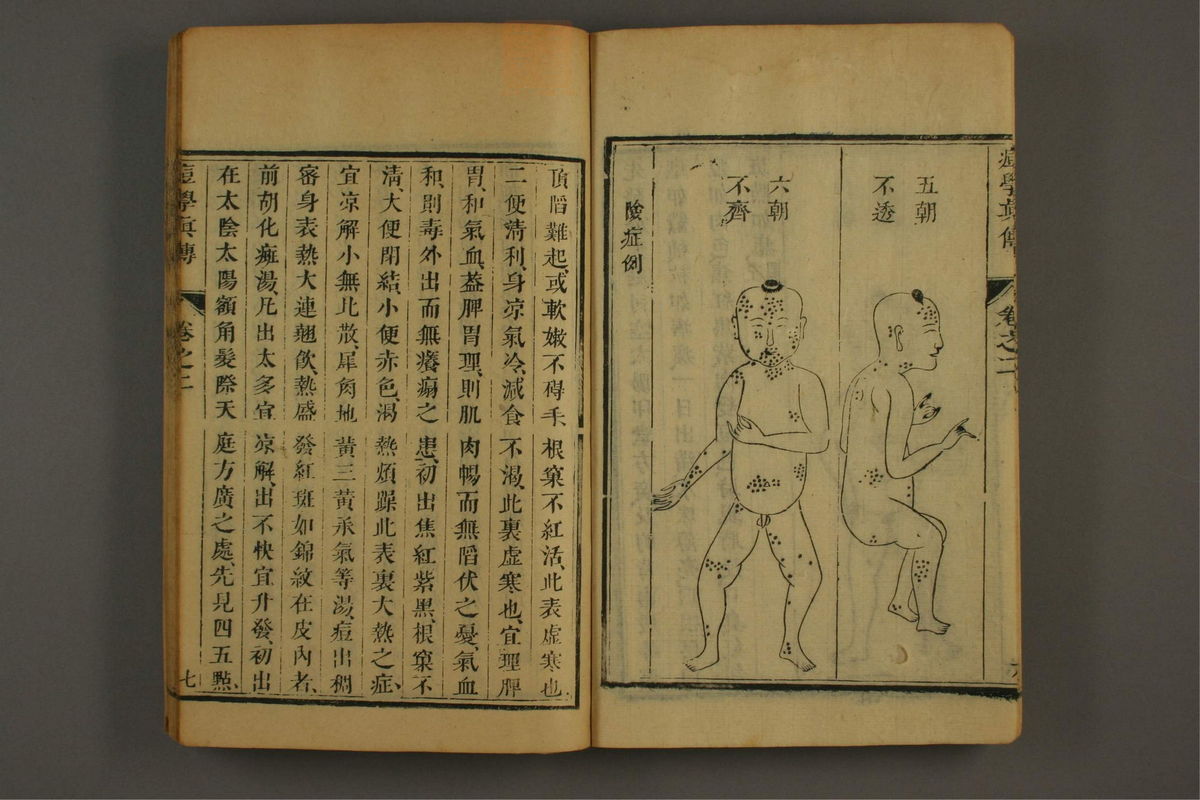 痘學眞傳
卷之二
五朝
不透
六朝
不齊
險症例
頂䧟難起、或軟嫩不碍手、根窠不紅活、此表虛寒也
二便清利、身凉氣冷、減食不渴、此裏虛寒也、宜理脾
胃、和氣血、葢脾胃理、則肌肉暢而無䧟伏之憂、氣血
和、則毒外出而無癢塌之患、初出焦紅紫黑、根窠不
淸、大便閉結、小便赤色、渴熱煩躁、此表裏大熱之症、
宜凉解小無比散、犀角地黃三黃承氣等湯、痘出稠
密、身表熱大連翹飲、熱盛發紅斑如錦紋在皮內者、
前胡化斑湯、凡出太多宜凉解、出不快宜升發、初出
在太陰太陽額角髮際天庭方廣之處、先見四五點、
痘學眞傳
卷之二
七